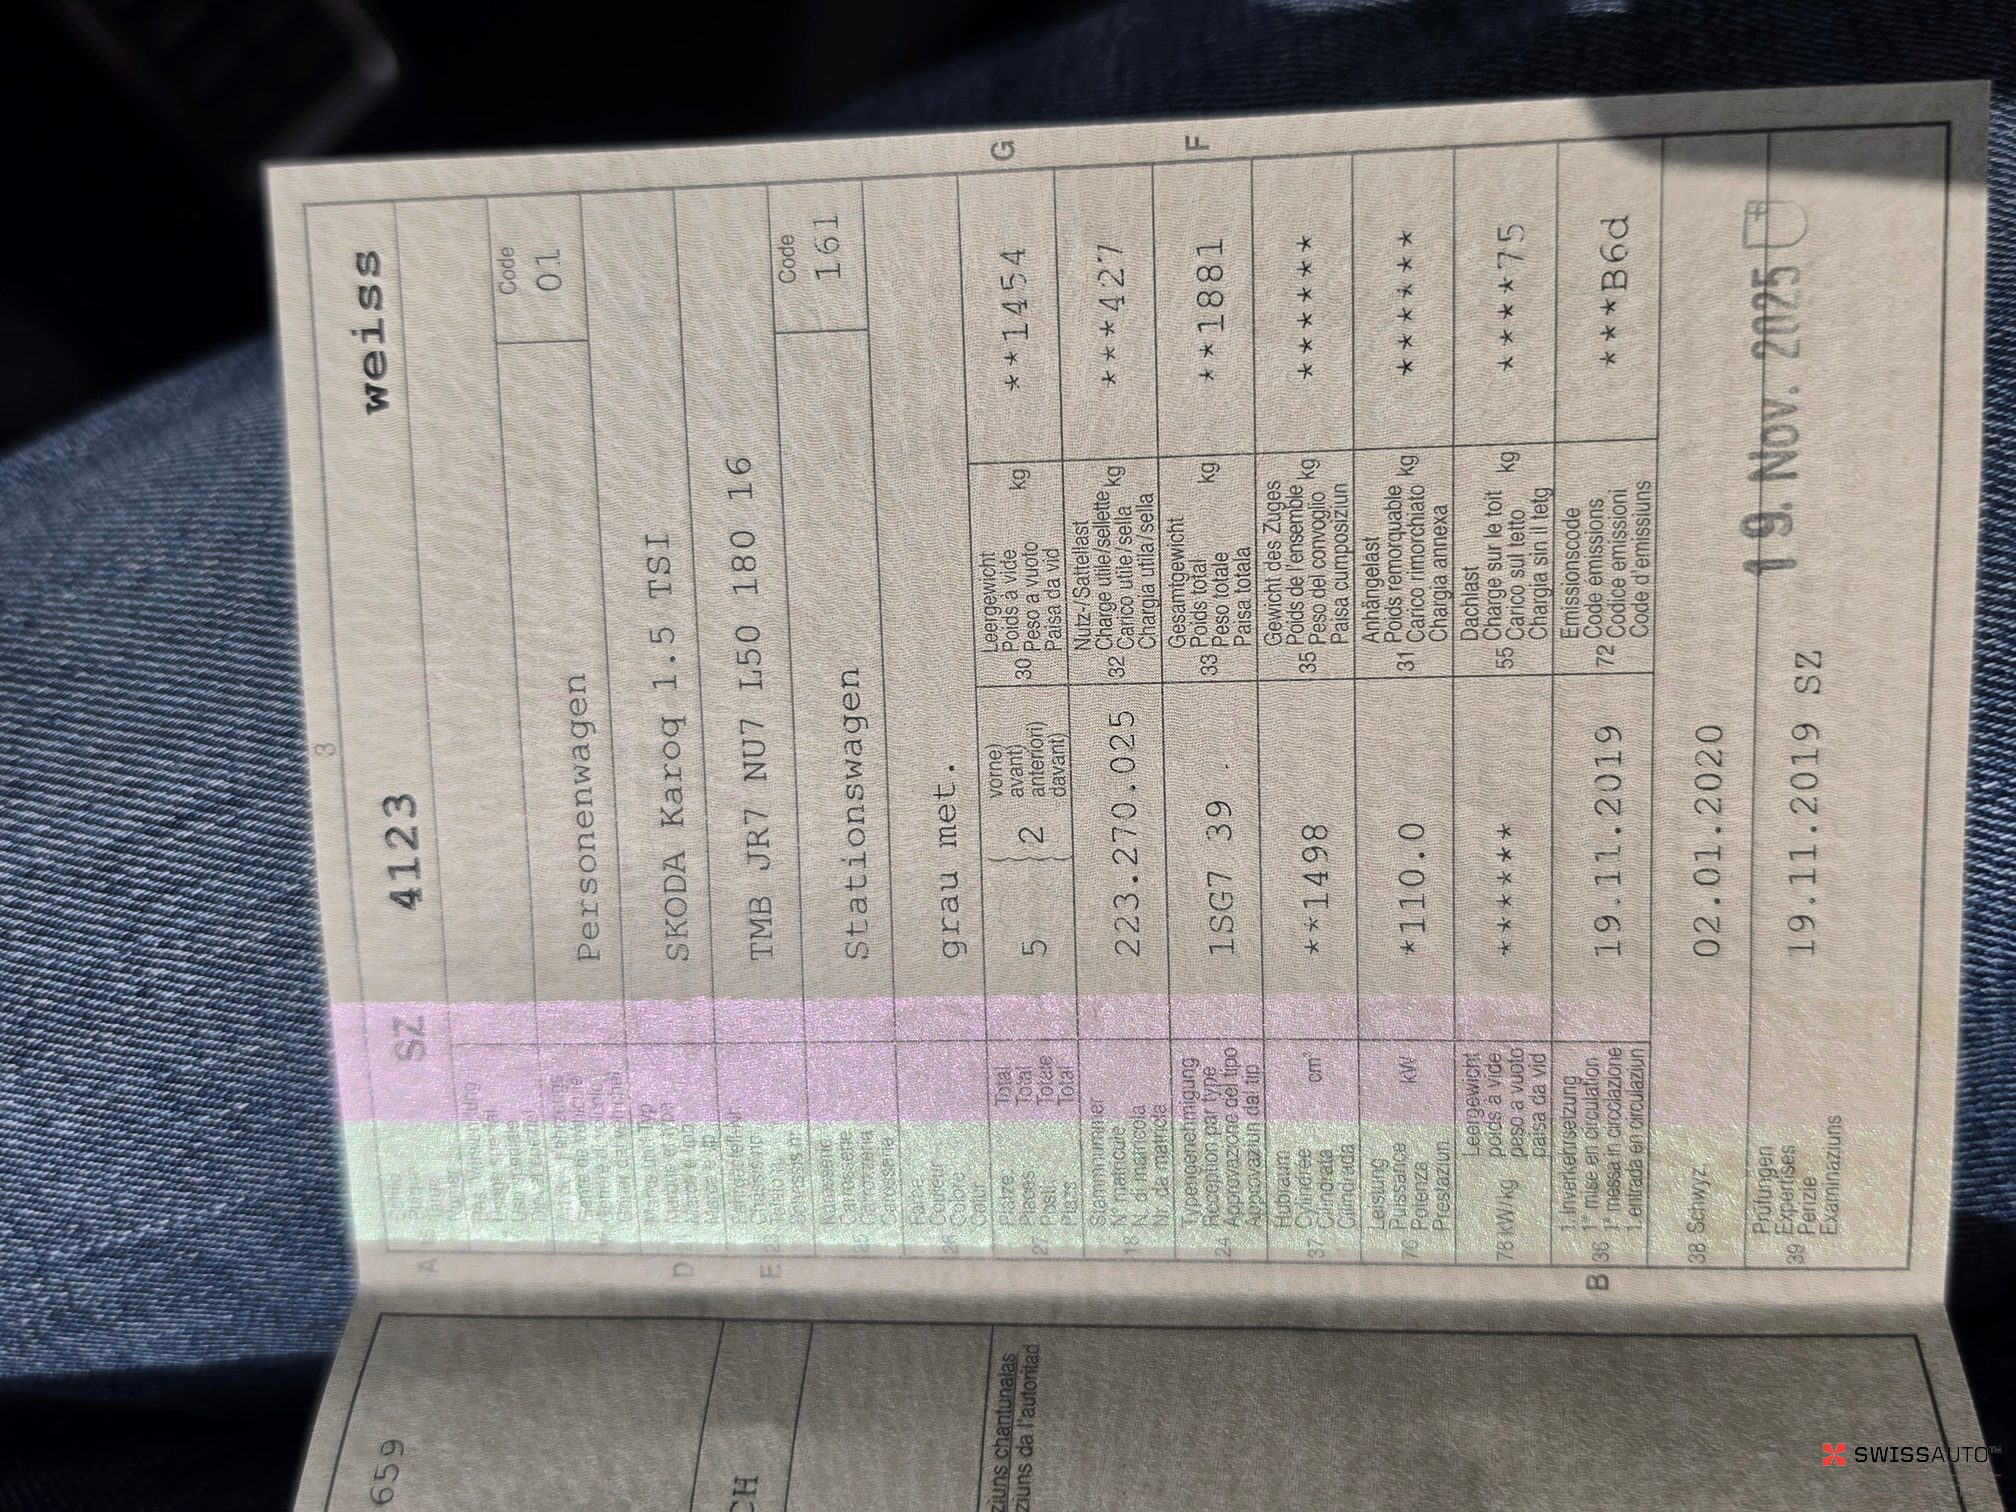 3
SZ 4123 weiss
A
Code
01
Personenwagen
D SKODA Karoq 1.5 TSI
E 23 TMB JR7 NU7 L50 180 16
25 Karosserie
Carrosserie
Carrozzeria
Carossaria
Stationswagen
Code
161
26 Farbe
Couleur
Colore
Colur
grau met.
27 Plätze
Places
Posti
Plazs
Total
Total
Totale
Total
5
2
vorne)
avant)
anteriori)
davant)
30 Leergewicht
Poids à vide
Peso a vuoto
Paisa da vid
kg
**1454
G
18 Stammnummer
N° matricule
N. di matricola
Nr. da matricla
223.270.025
32 Nutz-/Sattellast
Charge utile/sellette
Carico utile/sella
Chargia utila/sella
kg
***427
24 Typengenehmigung
Réception par type
Approvazione del tipo
Approvaziun dal tip
1SG7 39 .
33 Gesamtgewicht
Poids total
Peso totale
Paisa totala
kg
**1881
F
37 Hubraum
Cylindrée
Cilindrata
Cilindrada
cm³
**1498
35 Gewicht des Zuges
Poids de l'ensemble
Peso del convoglio
Paisa cumposiziun
kg
******
76 Leistung
Puissance
Potenza
Prestaziun
kW
*110.0
31 Anhängelast
Poids remorquable
Carico rimorchiato
Chargia annexa
kg
******
78 kW/kg
Leergewicht
poids à vide
peso a vuoto
paisa da vid
******
55 Dachlast
Charge sur le toit
Carico sul tetto
Chargia sin il tetg
kg
****75
B 36 1. Inverkehrsetzung
1re mise en circulation
1a messa in circolazione
1. entrada en circulaziun
19.11.2019
72 Emissionscode
Code emissions
Codice emissioni
Code d'emissiuns
***B6d
38 Schwyz, 02.01.2020
39 Prüfungen
Expertises
Perizie
Examinaziuns
19.11.2019 SZ
19. Nov. 2025
659
CH
ziuns chantunalas
ziuns da l'autoritad
SWISSAUTO™